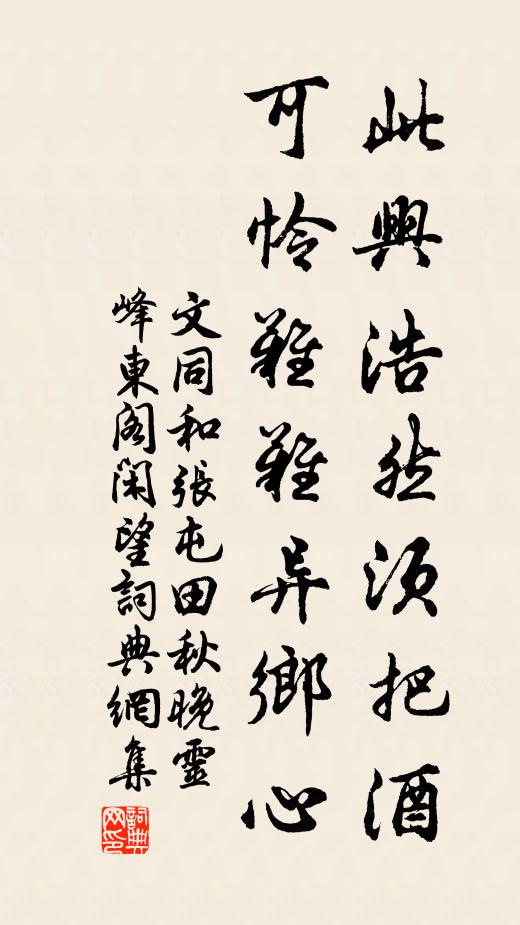 此興浩然須把酒
可憐難難异鄉心
文同和張屯田秋晚靈
峰東閣閑望詞典網集
詞典
网印